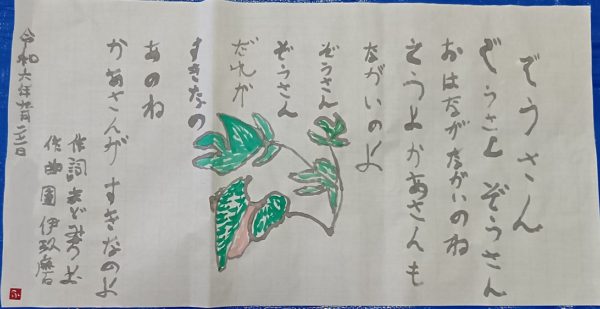 ぞうさん
ぞうさん ぞうさん
おはながながいのね
そうよかあさんも
ながいのよ
ぞうさん
ぞうさん
だれが
すきなの
あのね
かあさんがすきなのよ
作詞 まどみちお
作曲 團伊玖磨
令和六年